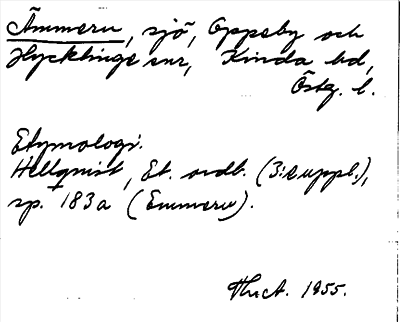 Ämmern, sjö, Oppeby och
Hycklinge snr, Kinda hd,
Östg. l.
Etymologi.
Hellqvist, Et. ordb. (3:e uppl.),
sp. 183a (Emmern).
1955.